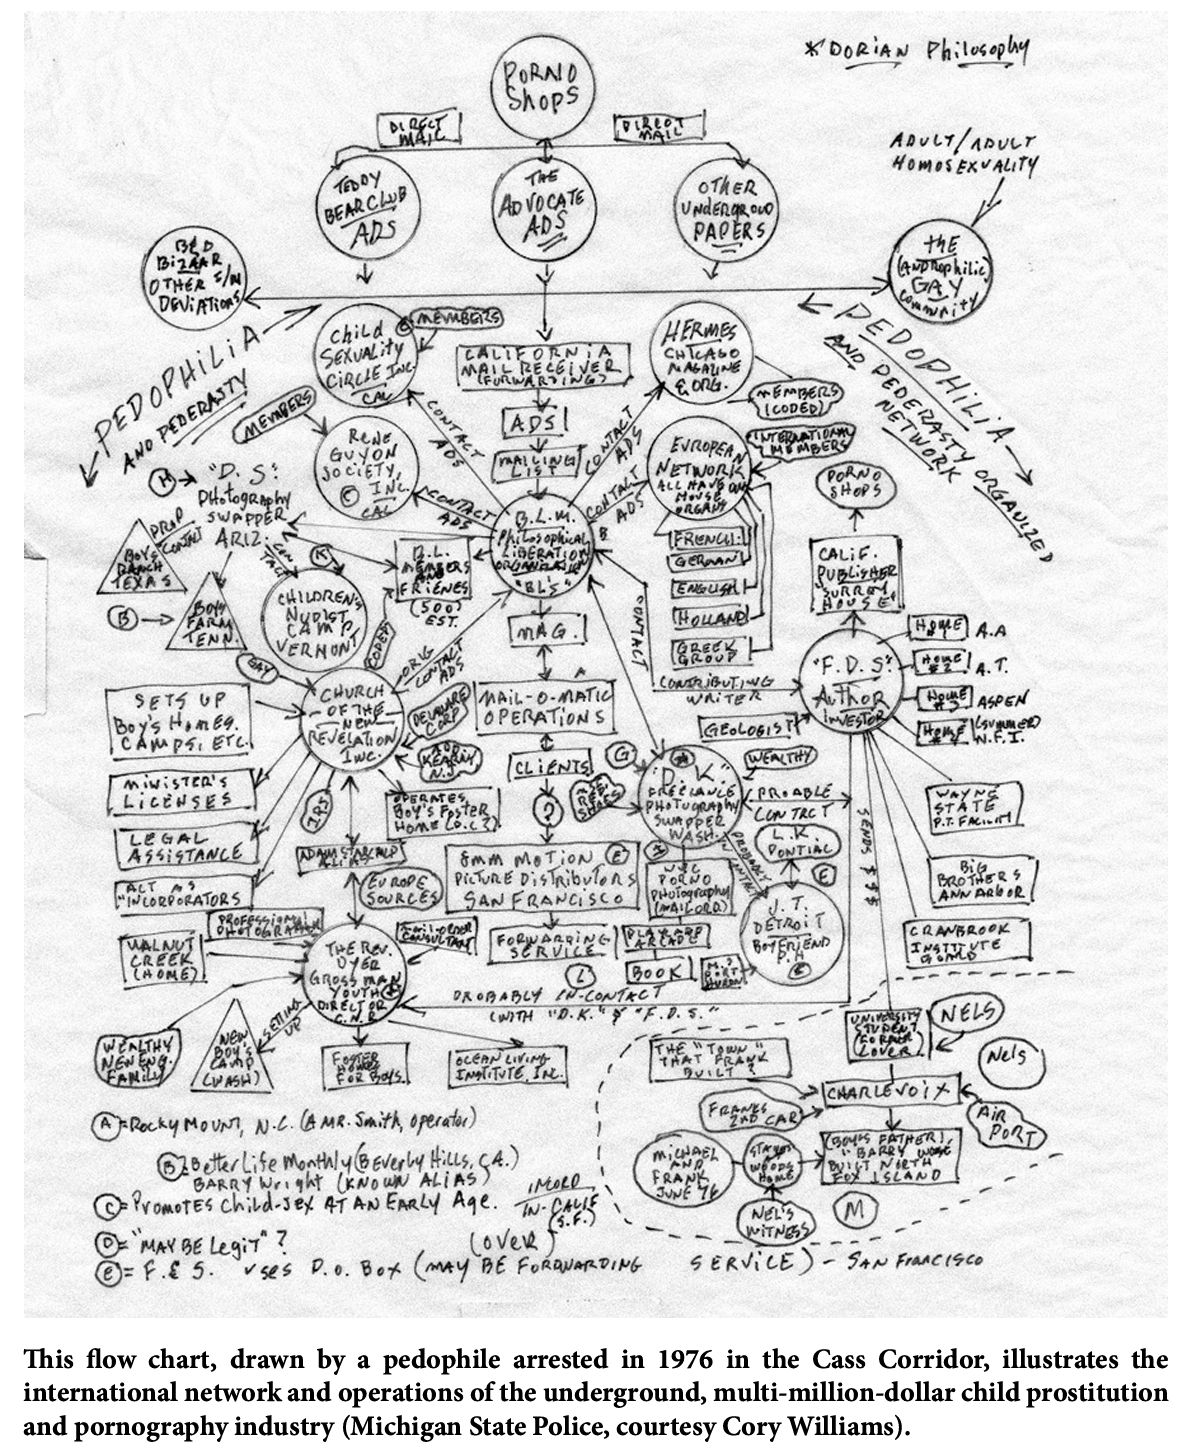 *DORIAN Philosophy
PORNO
Shops
DIRECT
MAIL
DIRECT
MAIL
ADULT/ADULT
HOMOSEXUALITY
TEDDY
BEAR CLUB
ADS
THE
ADVOCATE
ADS
OTHER
UNDERGROUD
PAPERS
B&D
BIZAAR
OTHER S/M
DEVIATIONS
the
(ANDROPHILIC)
GAY
COMMUNITY
PEDOPHILIA
AND PEDERASTY
PEDOPHILIA
AND PEDERASTY ORGANIZED
NETWORK
Child
SEXUALITY
CIRCLE INC.
CAL
MEMBERS
CALIFORNIA
MAIL RECEIVER
(FORWARDING)
HERMES
CHICAGO
MAGAZINE
& ORG.
MEMBERS
(CODED)
ADS
MAILING
LIST
CONTACT
ADS
CONTACT
ADS
MEMBERS
RENE
GUYON
SOCIETY,
INC.
C
CAL
CONTACT
ADS
CONTACT
ADS
EUROPEAN
NETWORK
ALL HAVE OWN
HOUSE
ORGANS
INTERNATIONAL
MEMBERS
FRENCH
GERMAN
ENGLISH
HOLLAND
GREEK
GROUP
PORNO
SHOPS
CALIF.
PUBLISHER
SURREY
HOUSE
H
"D. S."
PHOTOGRAPHY
SWAPPER
ARIZ.
PROP
CONTACT
CONTACT
BOYS
RANCH
TEXAS
B
BOYS
FARM
TENN.
K
CHILDREN'S
NUDIST
CAMP
VERMONT
B.L.
MEMBERS
AND
FRIENDS
(500)
EST.
B.L.M.
B
Philosophical
LIBERATION
ORGANIZATION
"BL'S"
MAG.
CODED
ORIG
CONTACT
ADS
CONTACT
CONTRIBUTING
WRITER
"F.D.S."
AUTHOR
INVESTOR
HOME A.A
HOME #2 A.T.
HOME #3 ASPEN
HOME (SUMMER)
N.F.I.
GEOLOGIST
SETS UP
BOY'S HOMES.
CAMPS, ETC.
CHURCH
OF THE
NEW
REVELATION
INC.
DELAWARE
CORP
KEARNY
N.J.
A
MAIL-O-MATIC
OPERATIONS
CLIENTS
?
G
"D.K."
FREELANCE
PHOTOGRAPHY
SWAPPER
WASH.
WEALTHY
PROABLE
CONTACT
SENDS $$$
MINISTER'S
LICENSES
LEGAL
ASSISTANCE
ACT AS
INCORPORATORS
IRS
OPERATES
BOY'S FOSTER
HOME (D.C.?)
ADAM STARCHILD
ALIAS
EUROPE
SOURCES
8MM MOTION E
PICTURE DISTRIBUTORS
SAN FRANCISCO
PORNO
PHOTOGRAPHY
(MAIL ORD.)
L.K.
PONTIAL
PROBABLY
IN CONTACT
E
J.T.
DETROIT
BOYFRIEND
P.H
WAYNE
STATE
P.T. FACILITY
BIG
BROTHERS
ANN ARBOR
CRANBROOK
INSTITUTE
WALNUT
CREEK
(HOME)
PROFESSIONAL
PHOTOGRAPHER
MAIL-ORDER
CONSULTANT
THE REV.
DYER
GROSSMAN
YOUTH
DIRECTOR
C.N.R
FORWARDING
SERVICE
L
ARCADE
BOOK
M.S
PORT
HURON
PROBABLY IN-CONTACT
WITH "D.K." & "F.D.S."
WEALTHY
NEW ENG.
FAMILY
SETTING
UP
NEW
BOY'S
CAMP
(WASH)
FOSTER
HOMES
FOR BOYS.
OCEAN LIVING
INSTITUTE, INC.
UNIVERSITY
STUDENT
(FORMER
LOVER)
NELS
Nels
THE "TOWN"
THAT FRANK
BUILT?
CHARLEVOIX
FRANKS
2ND CAR
AIR
PORT
MICHAEL
AND
FRANK
JUNE 76
STAYED
WOODS
HOME
(BOYS FATHER)
BUILT NORTH
FOX ISLAND
NEL'S
WITNESS
M
A = ROCKY MOUNT, N.C. (A MR. Smith, operator)
B = Better Life Monthly (BEVERLY HILLS, CA.)
BARRY Wright (KNOWN ALIAS)
C = PROMOTES Child-SEX AT AN EARLY Age.
INCORD
IN-CALIF
(S.F.)
D = "MAY BE Legit"?
(OVER)
E = F.& S. uses P.O. BOX (MAY BE FORWARDING SERVICE) - SAN FRANCISCO
This flow chart, drawn by a pedophile arrested in 1976 in the Cass Corridor, illustrates the
international network and operations of the underground, multi-million-dollar child prostitution
and pornography industry (Michigan State Police, courtesy Cory Williams).